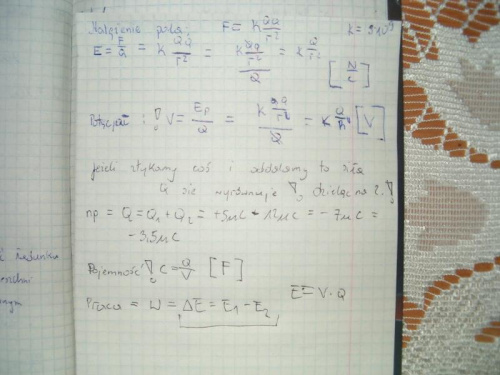 Natężenie pola: F = k Qq/r² k = 9·10⁹
E = F/Q = k Qq/r² = k Qq/r² / Q = k Q/r² [N/C]
Potencjał: V = Ep/Q = k Qq/r / Q = k Q/R [V]
jeżeli stykamy coś i oddalamy to siła
Q się wyrównuje, dzieląc na 2.
np = Q = Q₁ + Q₂ = +5μC - 12μC = -7μC =
-3,5μC
Pojemność C = Q/V [F]
Praca = W = ΔE = E₁ - E₂ E = V·Q